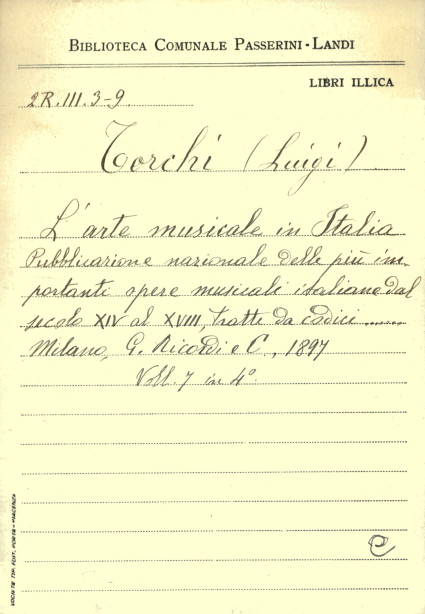 BIBLIOTECA COMUNALE PASSERINI-LANDI
LIBRI ILLICA
2R.III.3-9.
Torchi (Luigi)
L'arte musicale in Italia
Pubblicazione nazionale delle più im-
portanti opere musicali italiane dal
secolo XIV al XVIII, tratte da codici ......
Milano, G. Ricordi e C., 1897
Voll. 7 in 4°.
e